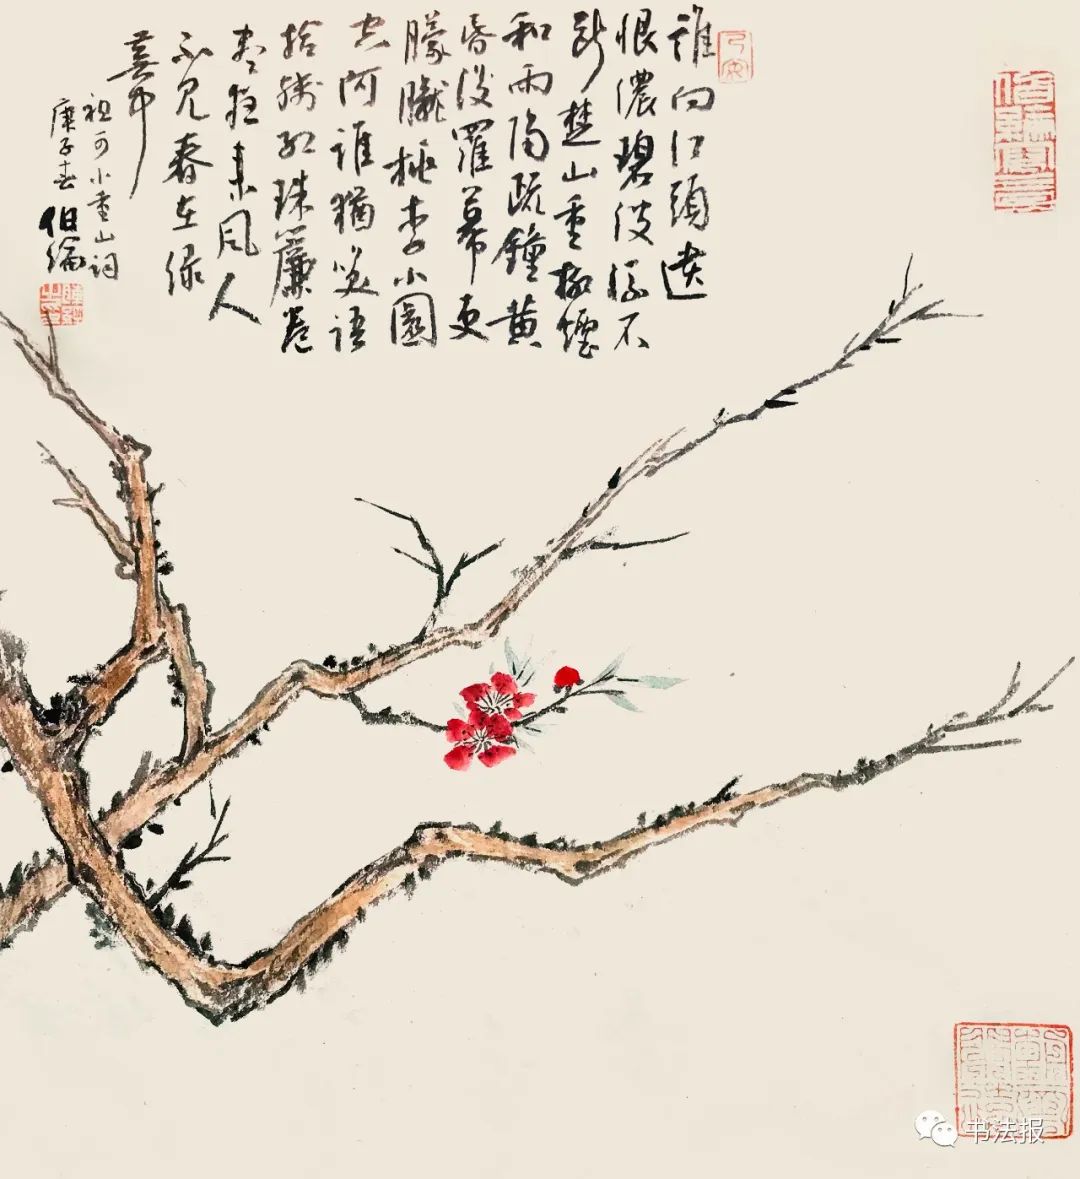 誰向江頭遺
恨濃碧波流不
斷楚山重柳煙
和雨隔疏鐘黄
昏後羅幕更
朦朧桃李小園
空阿誰猶笑語
拾殘紅珠簾卷
盡夜来風人
不見春在緑
蕪中
祖可小重山詞
庚子春伯
书法报